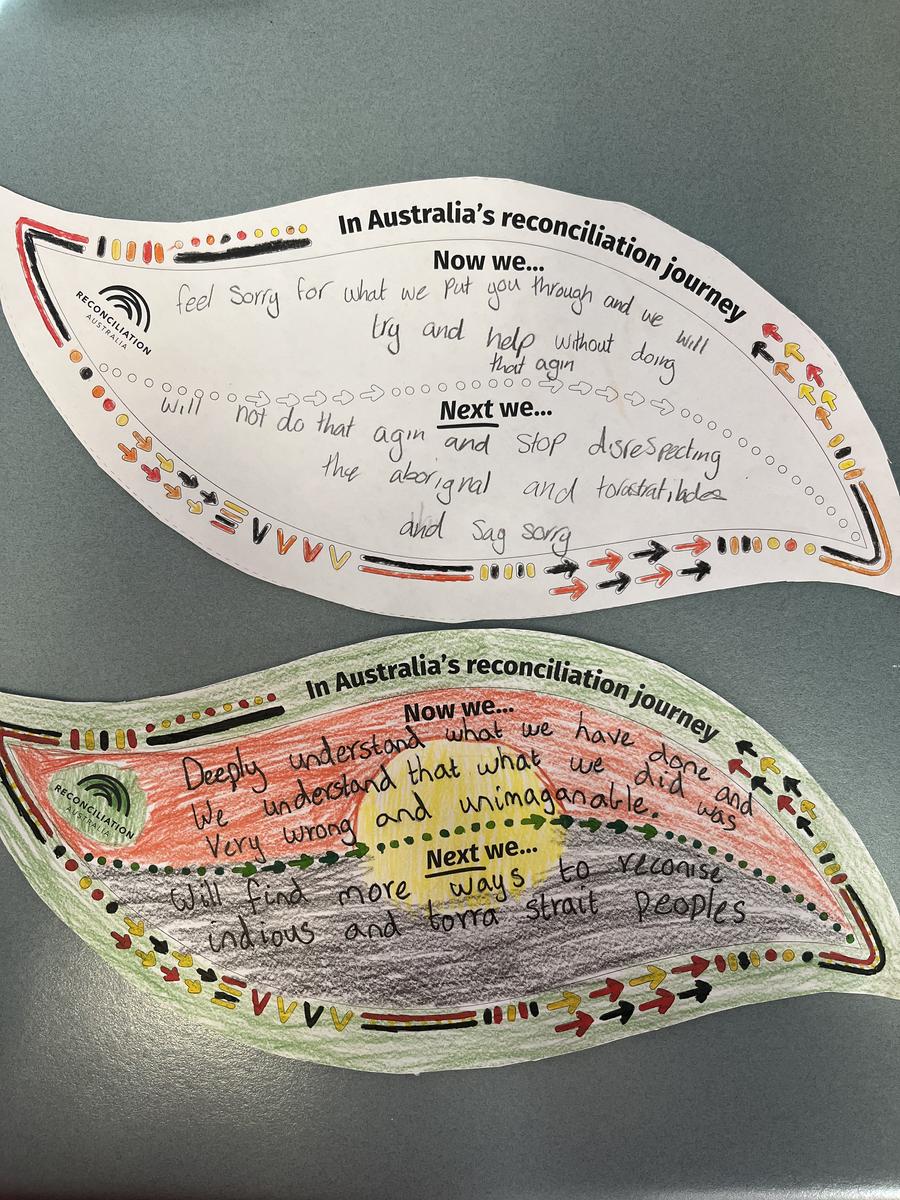 In Australia's reconciliation journey
Now we...
RECONCILIATION
AUSTRALIA
feel Sorry for what we put you through and we will
try and help without doing
that agin
Next we...
will not do that agin and stop disrespecting
the aborignal and
and Sag sorry
In Australia's reconciliation journey
Now we...
RECONCILIATION
AUSTRALIA
Deeply understand what we have done and
We understand that what we did was
Very wrong and unimaganable.
Next we...
Will find more ways to reconise
indious and torra strait peoples